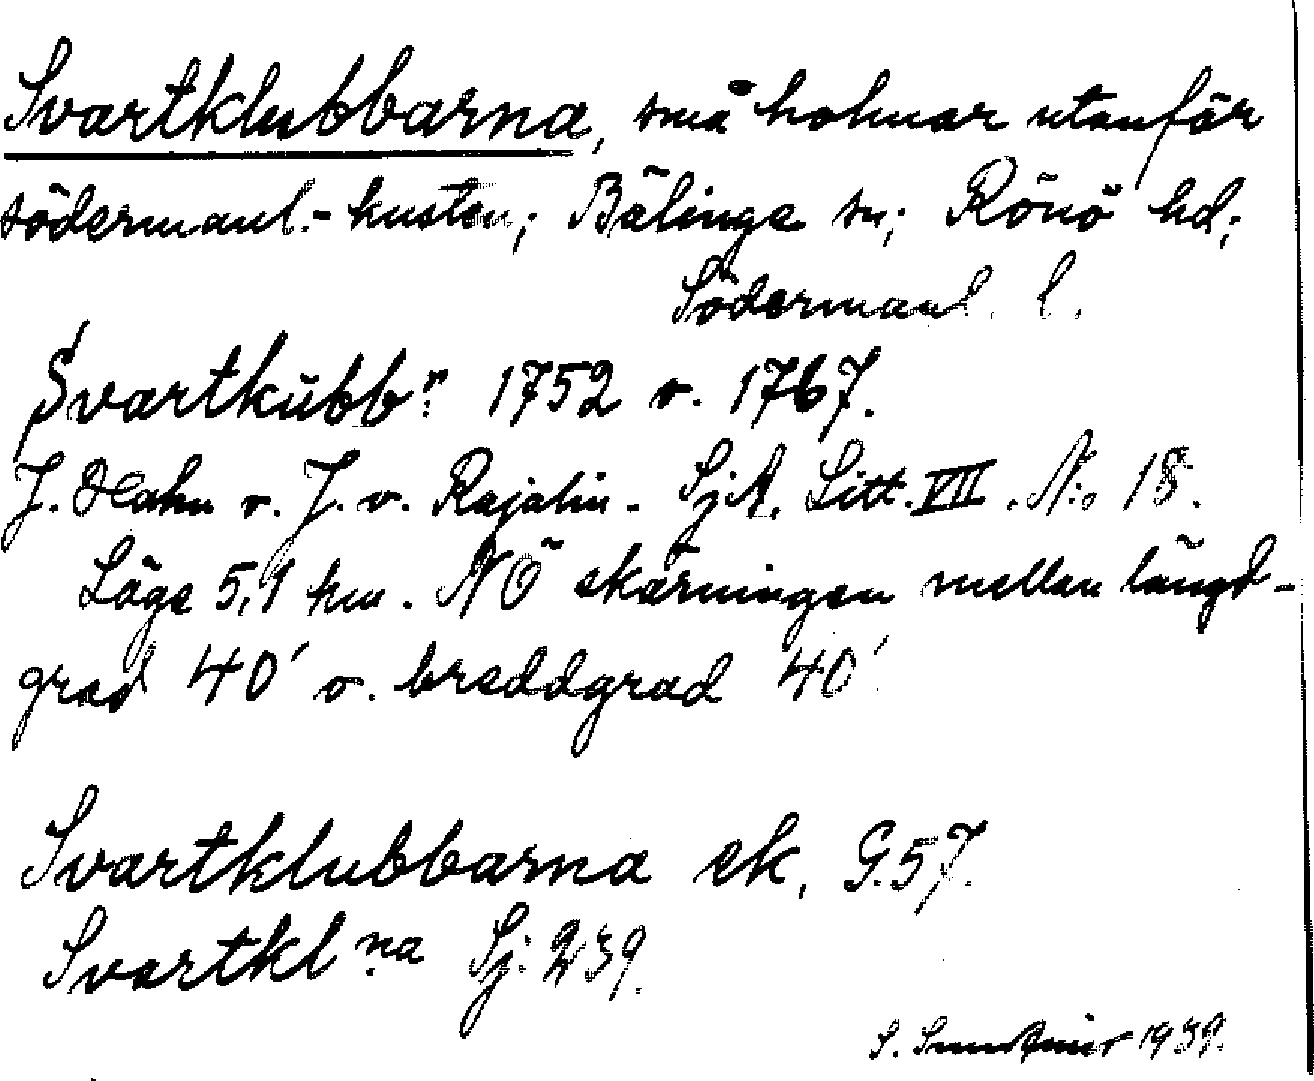 Svartklubbarna, små holmar utanför
södermanl.-kusten; Bälinge sn; Rönö hd;
Södermanl. l.
Svartkŭbb:n 1752 o. 1767.
J. Hahn o. J. v. Rajalin - SjA. Litt. VII. N:o 18.
Läge 5,1 km. NÖ skärningen mellan längd-
grad 40' o. breddgrad 40'
Svartklubbarna ek. G.57.
Svartkl:na Sj. 239.
S. 1939.